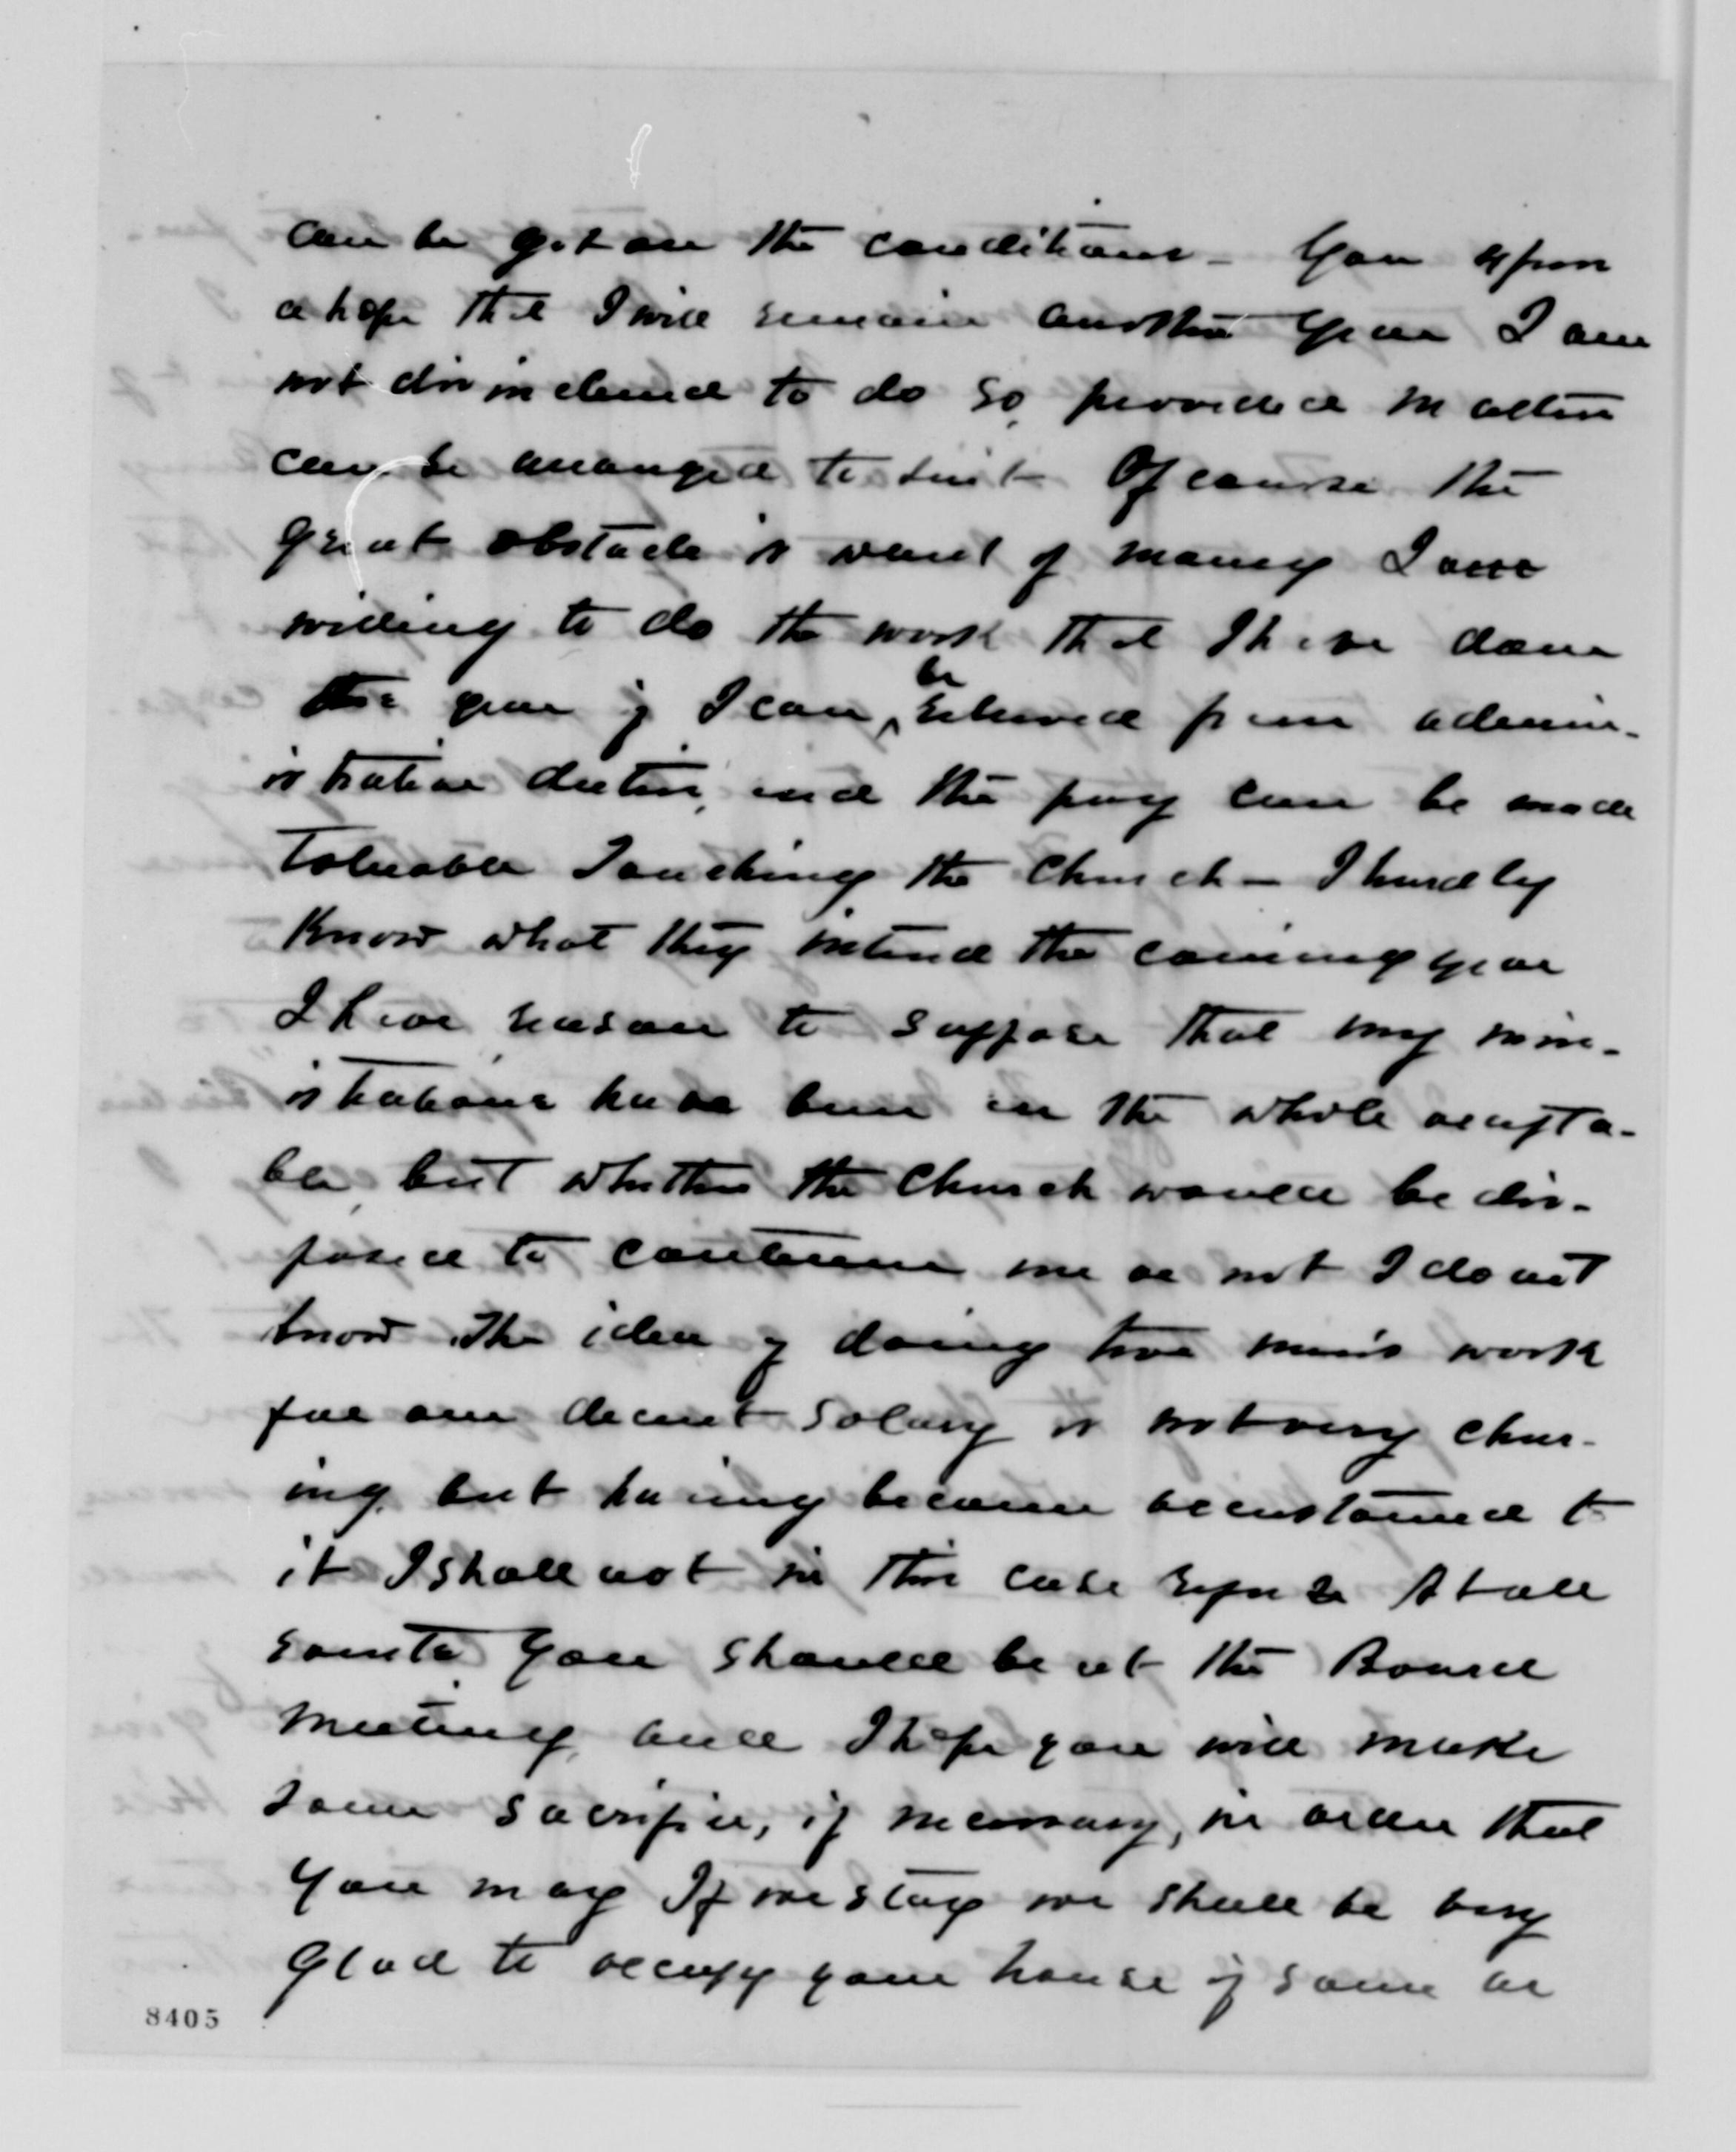 can be got on the conditions - You express
a hope that I will remain another year I am
not disinclined to do so, provided matters
can be arranged to suit Of course the
great obstacle is want of money I am
willing to do the work that I have done
this year if I can be relieved from admin-
istrative duties, and the pay can be made
tolerable Touching the Church - I hardly
know what they intend the coming year
I have reason to suppose that my min-
istrations have been on the whole accepta-
ble, but whether the Church would be dis-
posed to continue me or not I do not
know The idea of doing two men's work
for one decent salary is not very cheer-
ing, but having become accustomed to
it I shall not in this case refuse At all
events you should be at the Board
meeting, and I hope you will make
some sacrifice, if necessary, in order that
you may If we stay we shall be very
glad to occupy your house if some ar
8405